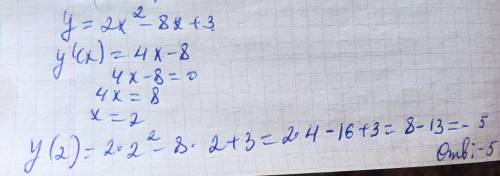 y = 2x² - 8x + 3
y'(x) = 4x - 8
4x - 8 = 0
4x = 8
x = 2
y(2) = 2·2² - 8·2 + 3 = 2·4 - 16 + 3 = 8 - 13 = - 5
Отв: -5